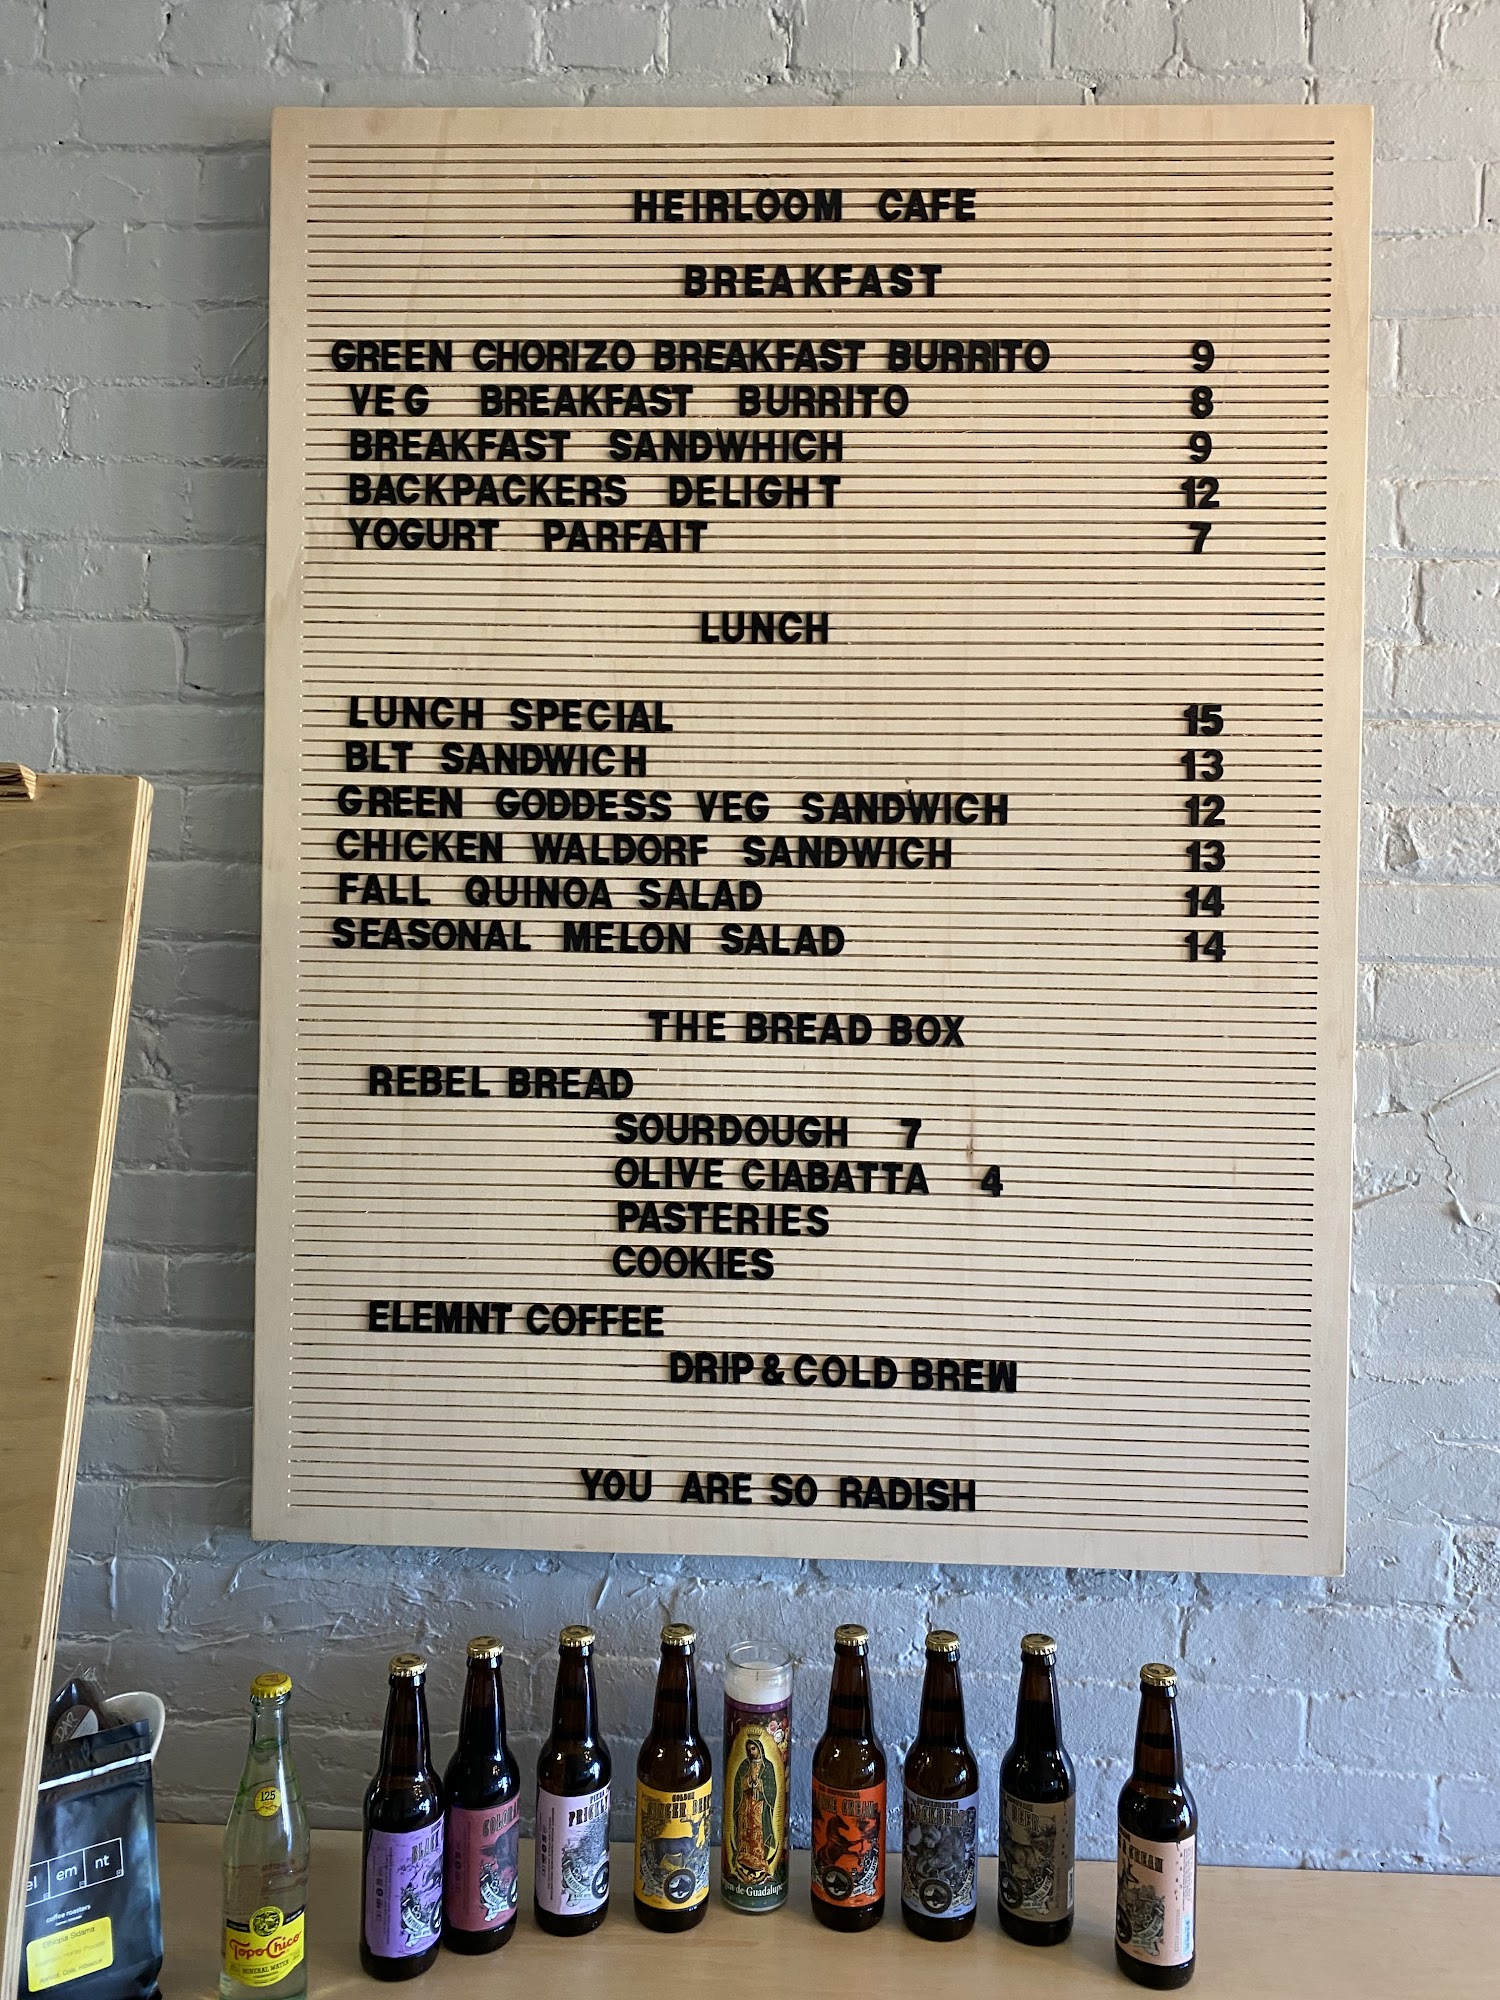 HEIRLOOM CAFE
BREAKFAST
GREEN CHORIZO BREAKFAST BURRITO 9
VEG BREAKFAST BURRITO 8
BREAKFAST SANDWHICH 9
BACKPACKERS DELIGHT 12
YOGURT PARFAIT 7
LUNCH
LUNCH SPECIAL 15
BLT SANDWICH 13
GREEN GODDESS VEG SANDWICH 12
CHICKEN WALDORF SANDWICH 13
FALL QUINOA SALAD 14
SEASONAL MELON SALAD 14
THE BREAD BOX
REBEL BREAD
SOURDOUGH 7
OLIVE CIABATTA 4
PASTERIES
COOKIES
ELEMNT COFFEE
DRIP & COLD BREW
YOU ARE SO RADISH
el em nt
coffee roasters
Ethiopia Sidama
125
Topo Chico
MINERAL WATER
GINGER BEER
de Guadalupe